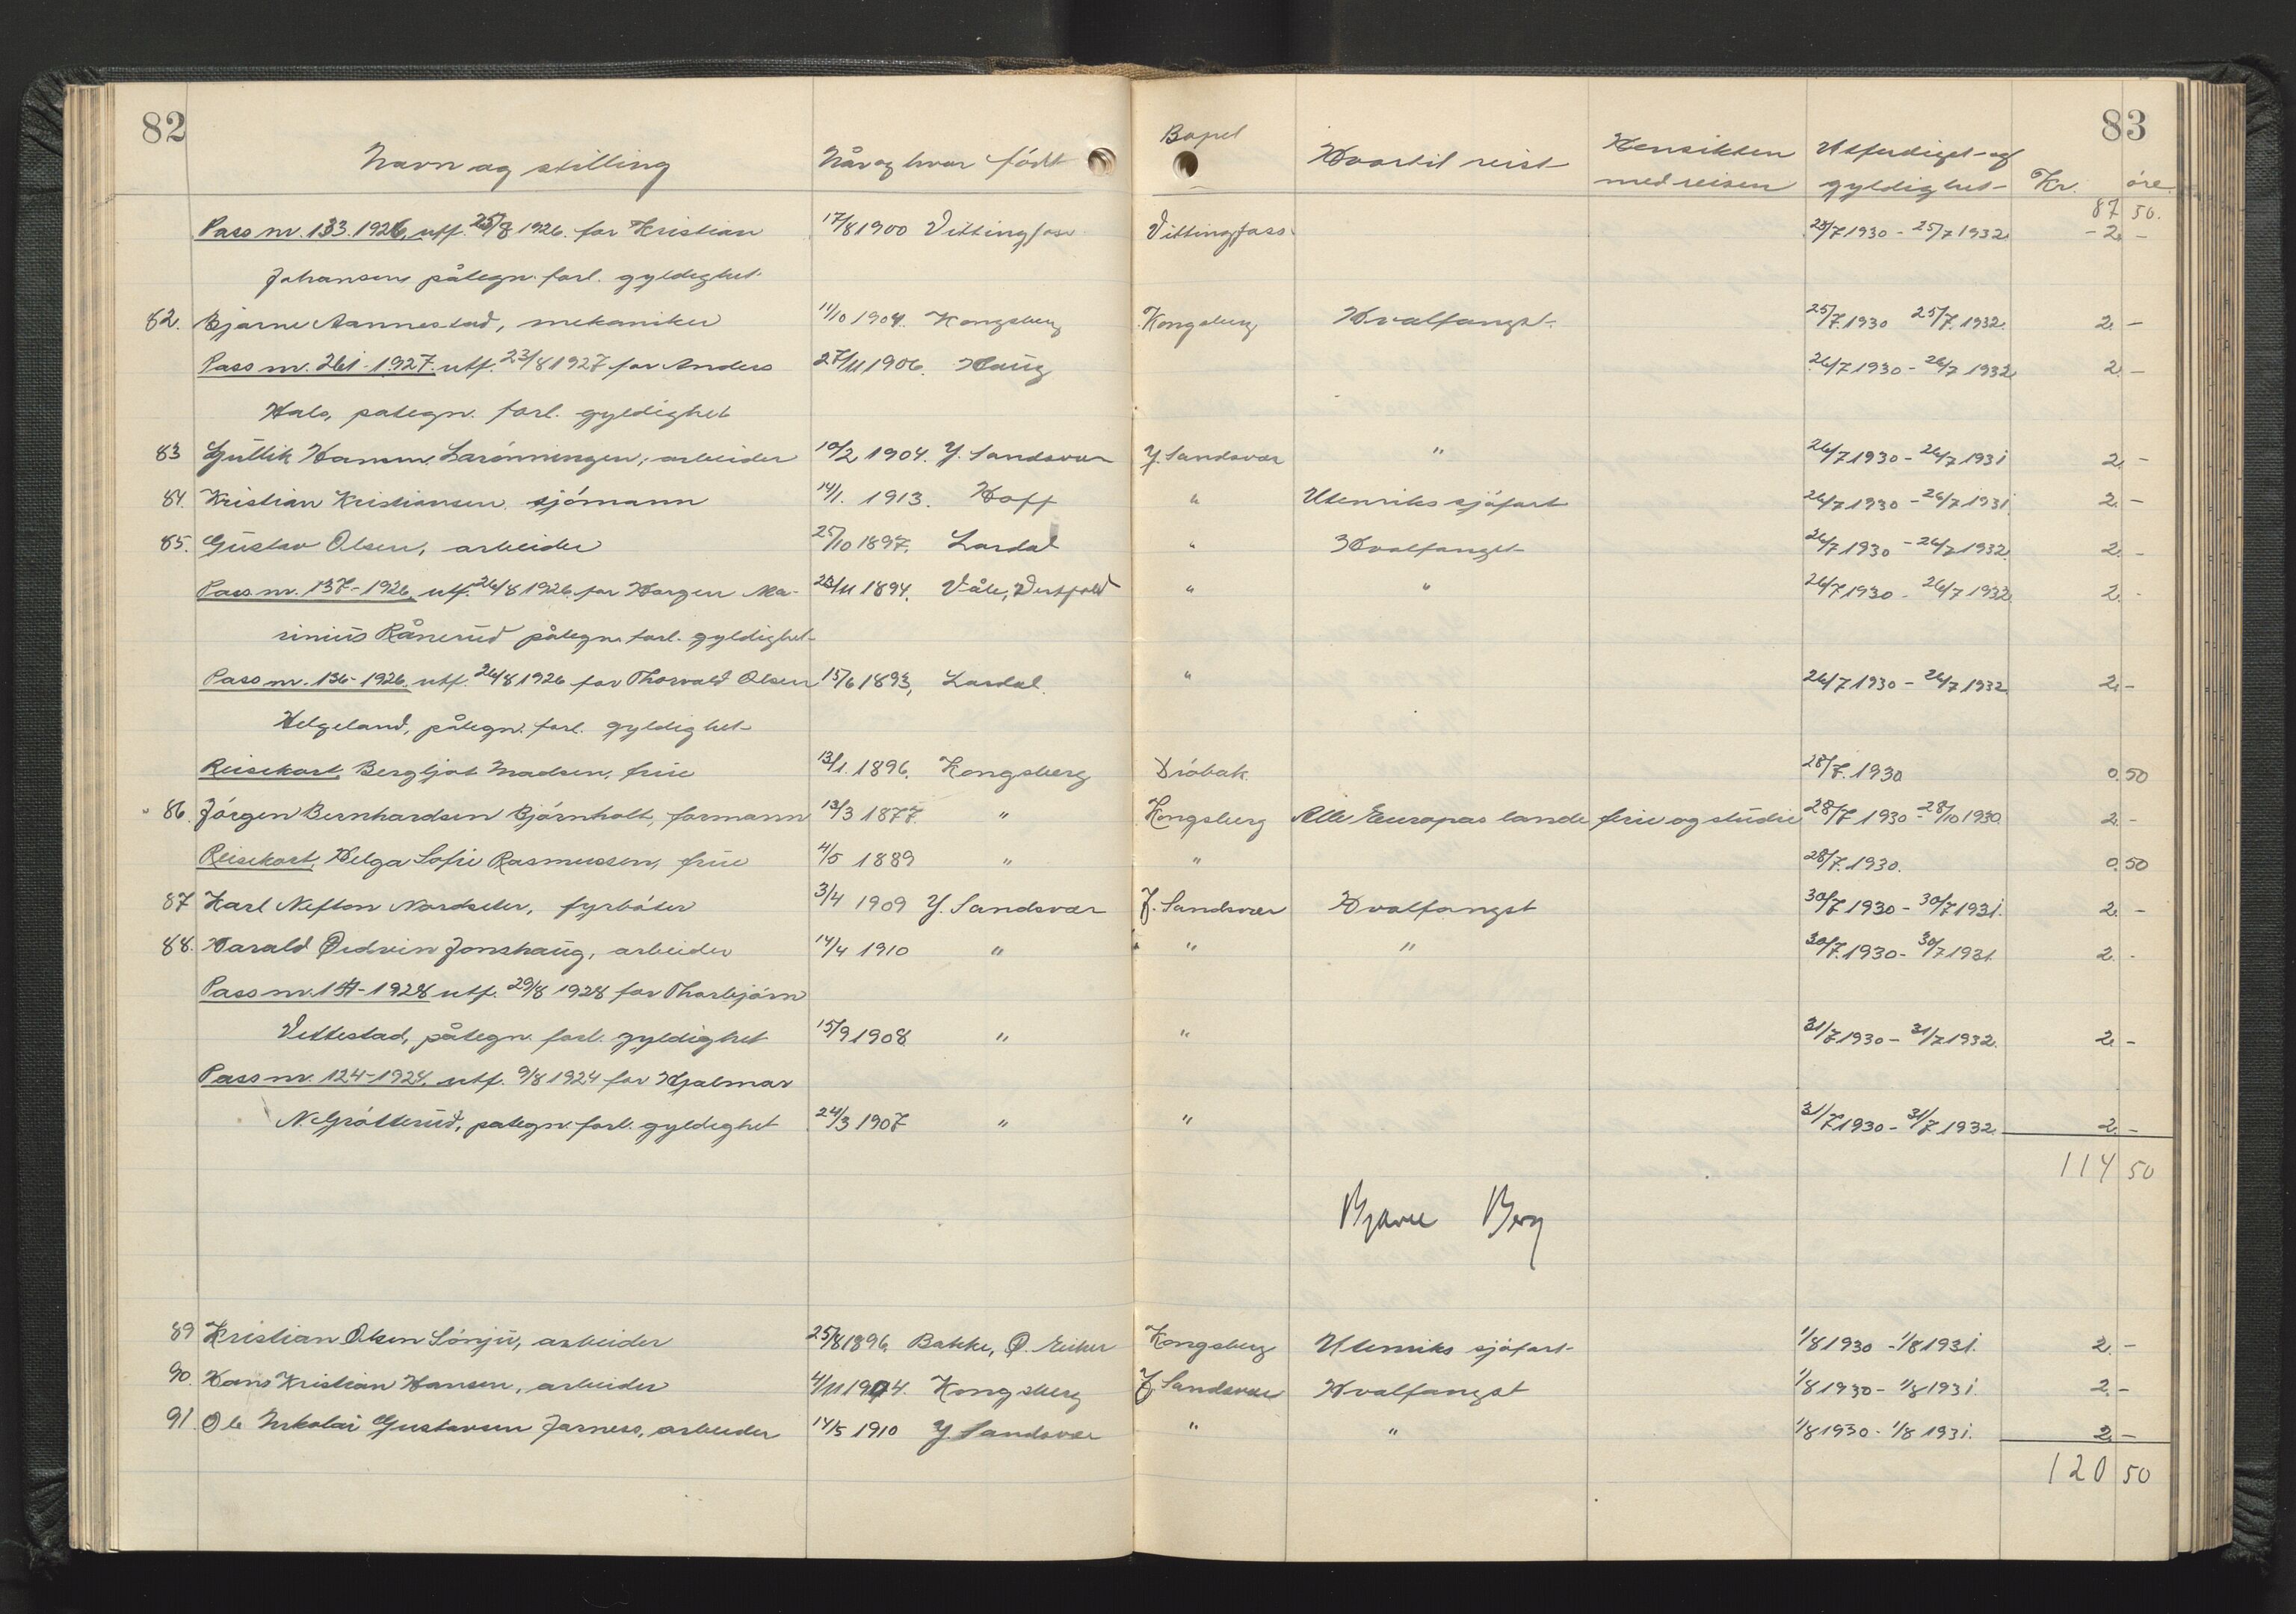 82
83
Navn og stilling Når og hvor født Bopel Hvortil reist Hensikten med reisen Utferdiget- og gyldighet- Kr. øre.
87 50.
Pass nr. 133. 1926, utf. 25/8 1926. for Kristian 17/8 1900 Vittingfoss Vittingfoss 25/7 1930 - 25/7 1932. - 2. -
Johansen, påtegn. forl. gyldighet.
82. Bjarne Aannestad, mekaniker 11/10 1904. Kongsberg Kongsberg Hvalfangst. 25/7. 1930 25/7. 1932. 2. -
Pass nr. 261 - 1927. utf. 23/8 1927 for Anders 27/11 1906. Haug 26/7 1930 - 26/7 1932. 2. -
Hals, pategn. forl. gyldighet
83 Gullik Hansen Larønningen, arbeider 10/2 1904. Y. Sandsvær Y. Sandsvær " 26/7 1930 - 26/7 1931 2. -
84. Kristian Kristiansen, sjømann 14/1. 1913. Hoff " Utenriks sjøfart 26/7 1930 - 26/7 1931 2. -
85. Gustav Olsen, arbeider 25/10 1897. Lardal " Hvalfangst 26/7 1930 - 26/7 1932. 2. -
Pass nr. 137 - 1926, utf. 26/8 1926. for Horgen Ma- 23/11 1894. Våle, Vestfold " " 26/7 1930 - 26/7 1932. 2. -
rinius Rånerud påtegn. forl. gyldighet-
Pass nr. 136 - 1926. utf. 26/8 1926 for Thorvald Olsen 15/6 1893, Lardal. " 26/7 1930 - 26/7 1932. 2. -
Helgeland, påtegn. forl. gyldighet-
Reisekort, Bergljot Madsen, frue 13/1. 1896. Kongsberg Drøbak. 28/7. 1930 0. 50
86. Jørgen Bernhardsen Bjørnholt, formann 13/3 1877. " Kongsberg Alle Europas lande ferie og studie 28/7 1930 - 28/10 1930. 2. -
Reisekort, Helga Sofie Rasmussen, frue 4/5 1889 " " 28/7. 1930. 0. 50
87 Karl Nefton Nordseter, fyrbøter 3/4 1909 Y. Sandsvær Y. Sandsvær Hvalfangst 30/7 1930 - 30/7 1931. 2. -
88. Harald Ordvin Jonshaug, arbeider 14/4 1910 " " " 30/7. 1930 - 30/7 1931. 2. -
Pass nr. - 1928 utf. 29/8 1928 for Thorbjørn
Vettestad, påtegn. forl. gyldighet 15/9 1908 " " 31/7 1930 - 31/7 1932. 2. -
Pass nr. 124 - 1924. utf. 9/8 1924 for Hjalmar
N. Grøtterud, pategn. forl. gyldighet 24/3 1907 " " 31/7 1930 - 31/7 1932. 2. -
114 50
Bjarne Berg
89 Kristian Olsen Sønju, arbeider 25/8 1896, Bakke, Ø. Eiker Kongsberg Utenriks sjøfart- 1/8 1930 - 1/8 1931. 2. -
90. Hans Kristian Hansen, arbeider 4/11 1904. Kongsberg Y. Sandsvær Hvalfangst 1/8 1930 - 1/8 1931. 2. -
91. Ole Nikolai Gustavsen Jarness, arbeider 14/5 1910 Y. Sandsvær " " 1/8 1930 - 1/8 1931. 2. -
120 50